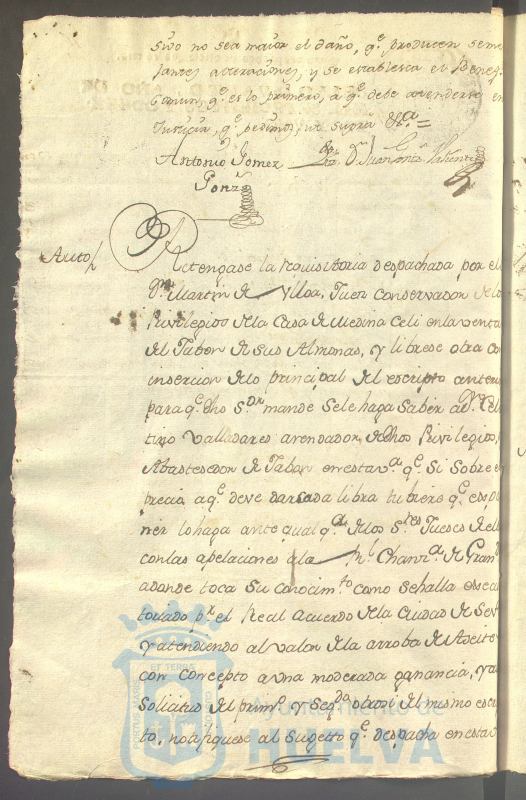 sivo no sea maior el daño, qᵉ producen seme
jantes alteraciones, y se establesca el Benefᵒ
Comun qᵉ es lo primero, a qᵉ debe atenderse en
Justicia, qᵉ pedimos, ut supra &ᵃ =
Antonio Gomez
Gonzˢ
Dⁿ Juan Valiente
Auto
Retengase la requisitoria despachada por el
Dⁿ Martin de Ylloa, Juez Conservador de los
Privilegios de la Casa de Medina Celi en la venta
del Jabon de sus Almonas, y librese otra co
insercion de lo principal del escripto antece
para qᵉ dho Sᵒʳ mande se le haga saber a Dⁿ Cele
tino Valladares arrendador, de dhos Privilegios,
Abastesedor de Jabon en esta vᵃ qᵉ si sobre el
precio a qᵉ deve dar cada libra tubiere qᵉ expo
ner lo haga ante qualqᵃ de los Sʳᵉˢ Jueses de ella
con las apelaciones a la Rˡ Chanzᵃ de Granᵈ
adonde toca su conocimᵗᵒ como se halla execu
toriado pʳ el Real Acuerdo de la Ciudad de Sevˡ
y atendiendo al valor de la arroba de Aseite
con concepto a una moderada ganancia, y a
solicitud del primᵒ y Segᵈᵒ otrosi del mismo escri
to, notifiquese al sugetto qᵉ despacha en esta
PORTUS MARIS
ET TERRE
CUSTODIA
Ayuntamiento de
HUELVA